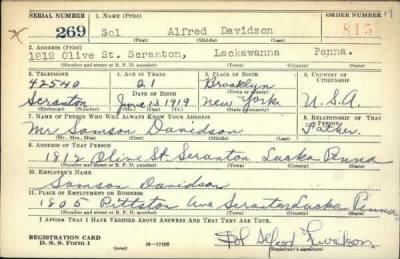 SERIAL NUMBER 1. NAME ORDER NUMBER
269 Sol Alfred Davidson 815
(First) (Middle) (Last)
2. ADDRESS (Print)
1812 Olive St. Scranton, Lackawanna Penna.
(Number and street or R. F. D. number) (Town) (County) (State)
3. TELEPHONE 4. AGE IN YEARS 5. PLACE OF BIRTH 6. COUNTRY OF CITIZENSHIP
42540 21 Brooklyn
DATE OF BIRTH (Town or county)
Scranton June 13 1919 New York U.S.A
(Exchange) (Number) (Mo.) (Day) (Yr.) (State or country)
7. NAME OF PERSON WHO WILL ALWAYS KNOW YOUR ADDRESS 8. RELATIONSHIP OF THAT PERSON
Mr Samson Davidson Father
(Mr., Mrs., Miss) (First) (Middle) (Last)
9. ADDRESS OF THAT PERSON
1812 Olive St Scranton Lacka Penna
(Number and street or R. F. D. number) (Town) (County) (State)
10. EMPLOYER'S NAME
Samson Davidson
11. PLACE OF EMPLOYMENT OR BUSINESS
1805 Pittston Ave Scranton Lacka Penna
(Number and street or R. F. D. number) (Town) (County) (State)
I AFFIRM THAT I HAVE VERIFIED ABOVE ANSWERS AND THAT THEY ARE TRUE.
REGISTRATION CARD
D. S. S. Form 1 (over) 16-17105 Sol Alfred Davidson
(Registrant's signature)